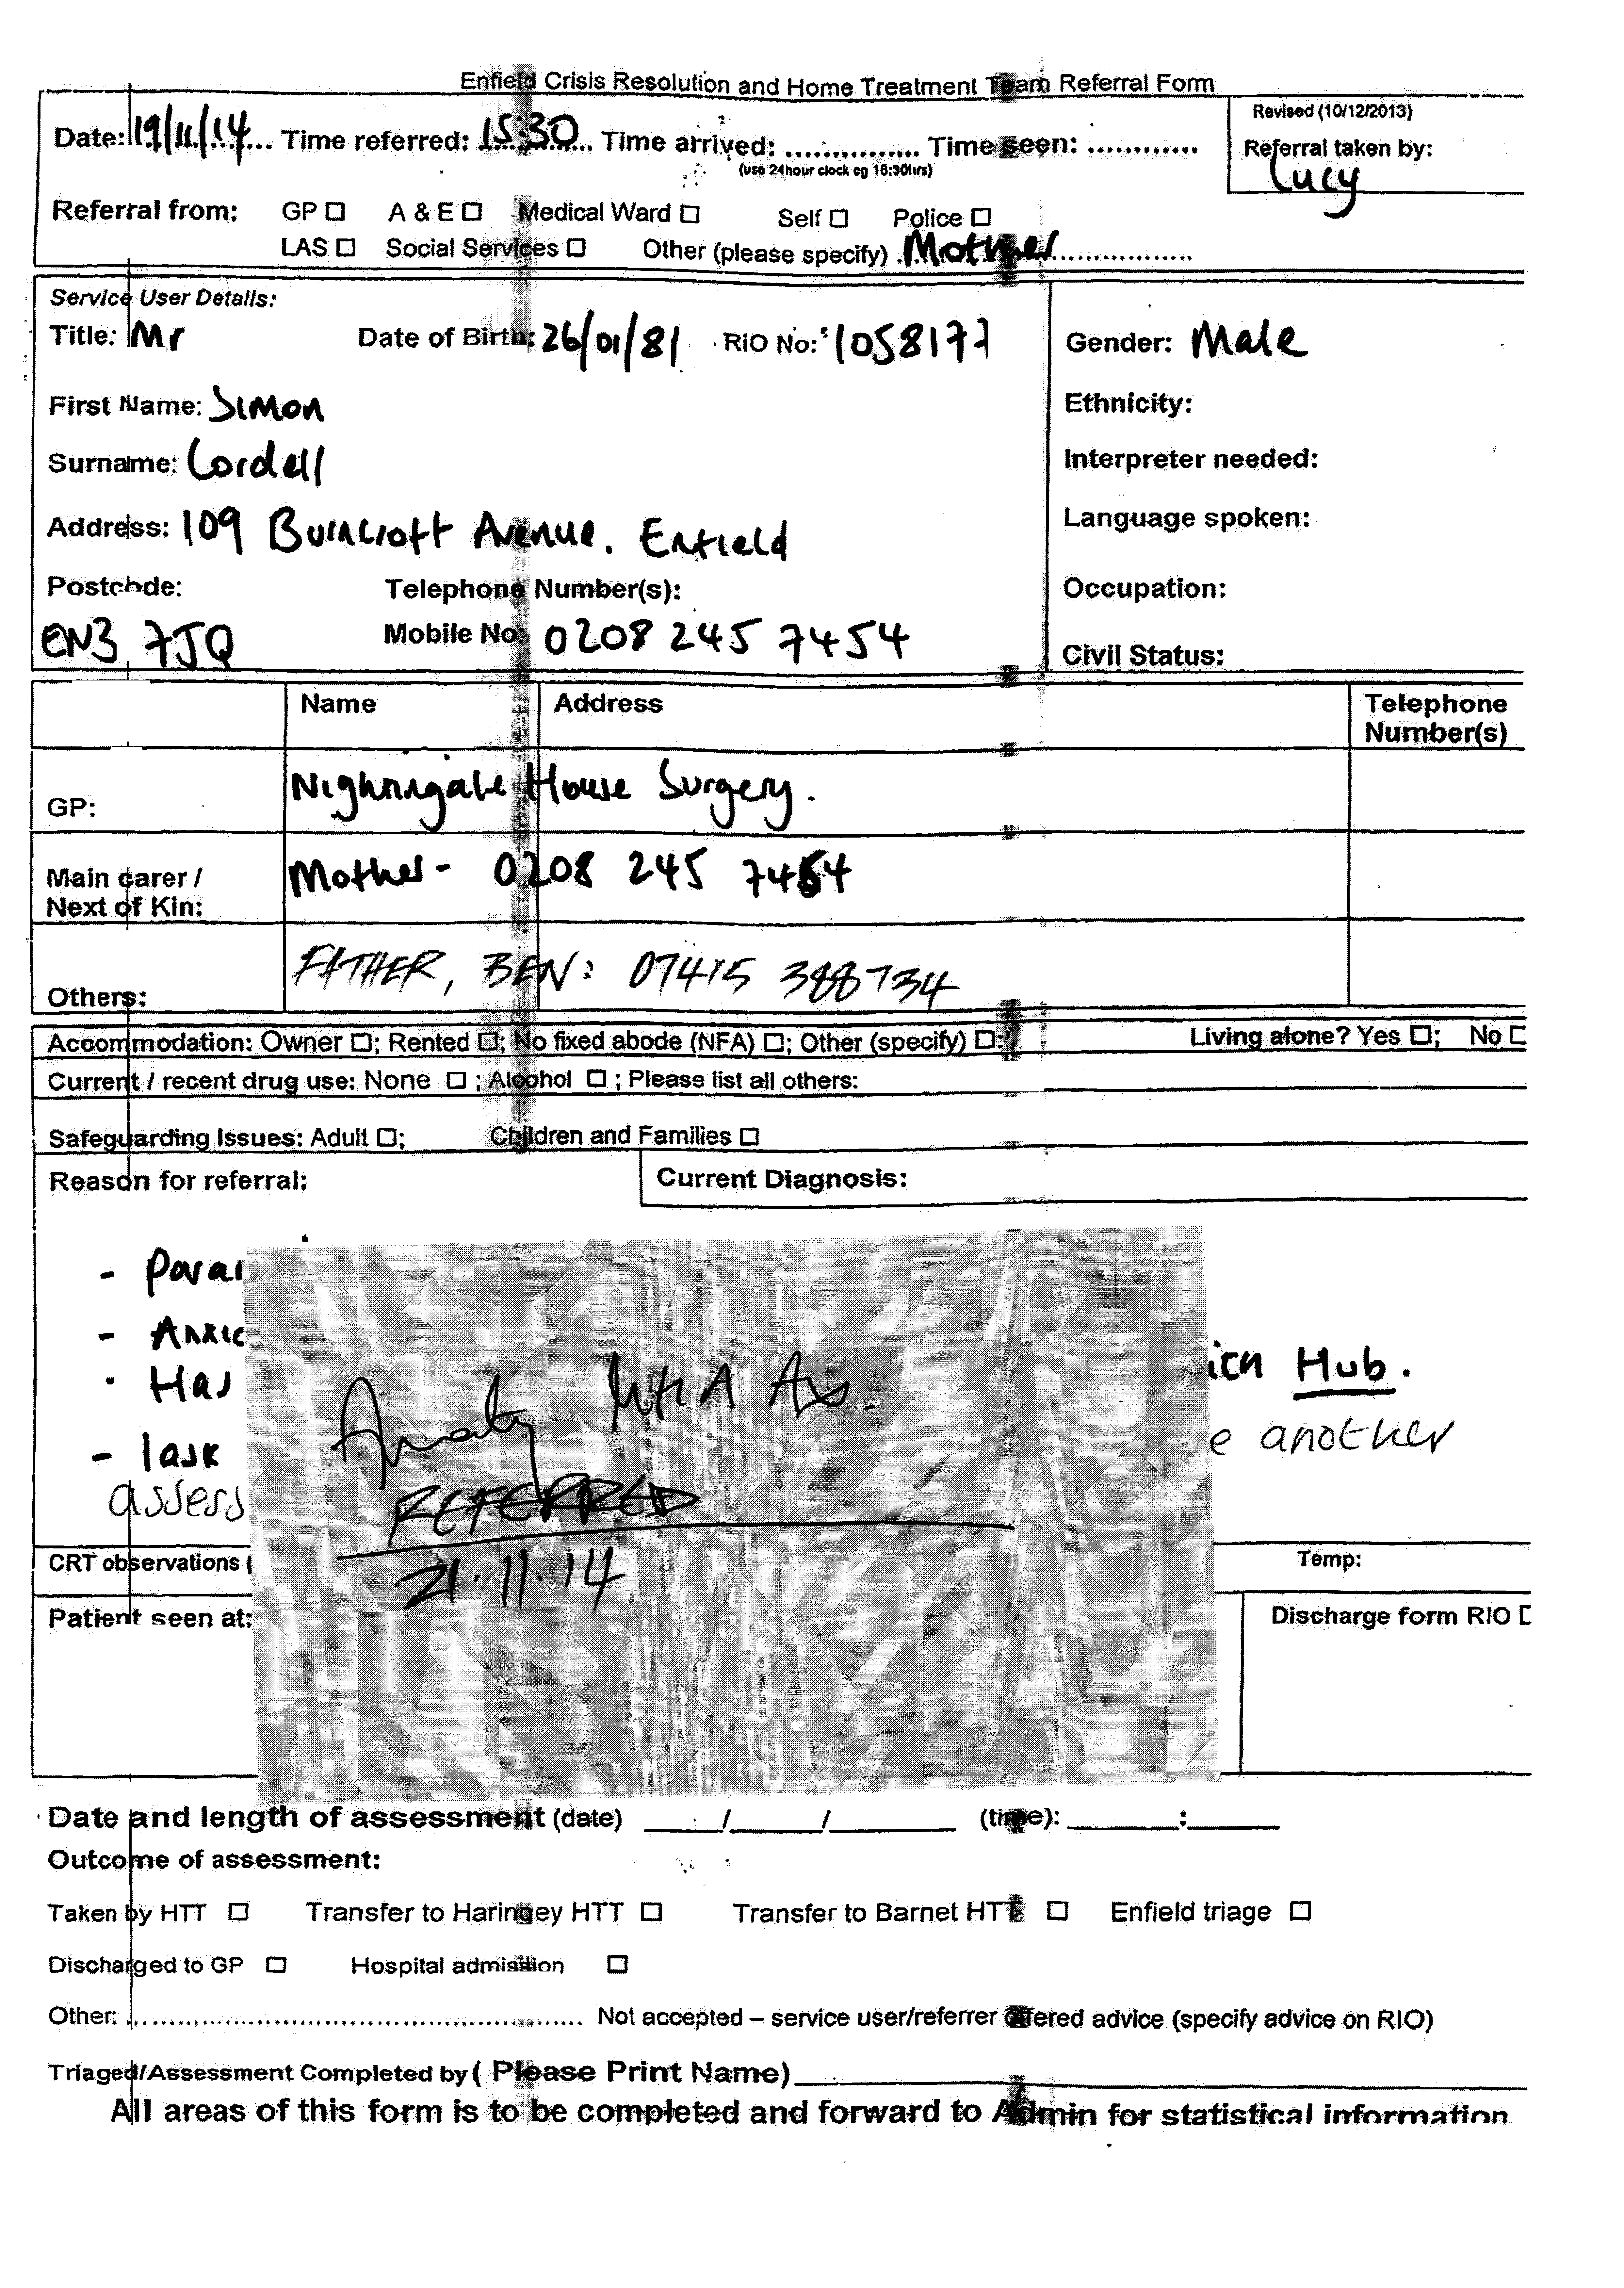 Enfield Crisis Resolution and Home Treatment Team Referral Form
Revised (10/12/2013)
Date: 19/11/14 Time referred: 15:30 Time arrived: ............... Time seen: ............
(use 24hour clock eg 16:30hrs)
Referral taken by:
Lucy
Referral from: GP □ A & E □ Medical Ward □ Self □ Police □
LAS □ Social Services □ Other (please specify) Mother
Service User Details:
Title: Mr Date of Birth: 26/01/81 RiO No: 1058177
Gender: Male
First Name: Simon
Ethnicity:
Surname: Cordell
Interpreter needed:
Address: 109 Burncroft Avenue. Enfield
Language spoken:
Postcode: Telephone Number(s):
Occupation:
EN3 7JQ Mobile No: 0208 245 7454
Civil Status:
Name Address Telephone Number(s)
GP: Nightingale House Surgery.
Main carer / Next of Kin: Mother - 0208 245 7454
Others: FATHER, BEN: 07415 388734
Accommodation: Owner □; Rented □; No fixed abode (NFA) □; Other (specify) □: Living alone? Yes □; No □
Current / recent drug use: None □ ; Alcohol □ ; Please list all others:
Safeguarding Issues: Adult □; Children and Families □
Reason for referral: Current Diagnosis:
- Parai
- Anxie
- Has Hub.
- Task e another
assess
MHA Ax.
REFERRED
21.11.14
CRT observations ( Temp:
Patient seen at: Discharge form RIO □
Date and length of assessment (date) ____/____/____ (time): ____:____
Outcome of assessment:
Taken by HTT □ Transfer to Haringey HTT □ Transfer to Barnet HTT □ Enfield triage □
Discharged to GP □ Hospital admission □
Other: ............................................ Not accepted – service user/referrer offered advice (specify advice on RIO)
Triaged/Assessment Completed by ( Please Print Name)____
All areas of this form is to be completed and forward to Admin for statistical information